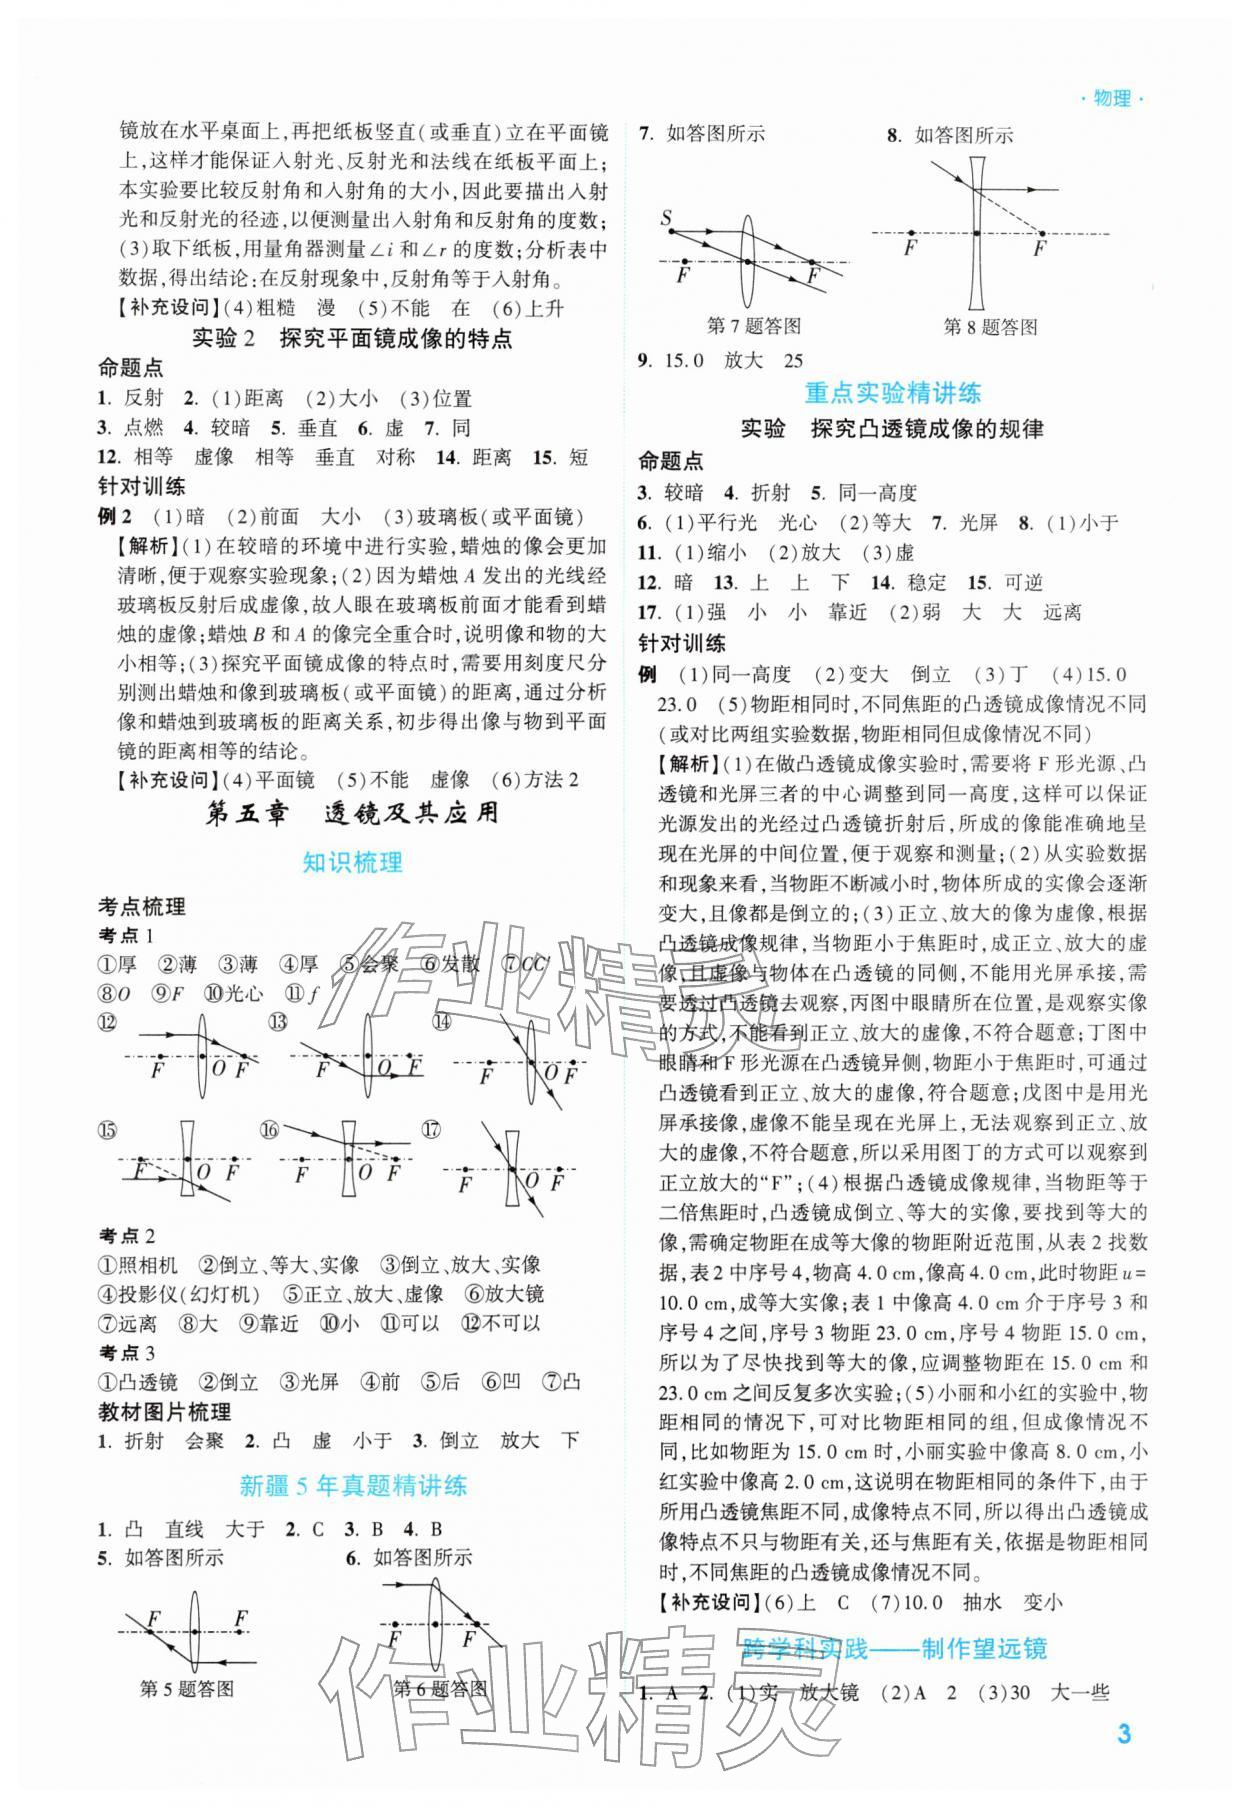 · 物理 ·
镜放在水平桌面上,再把纸板竖直(或垂直)立在平面镜
上,这样才能保证入射光、反射光和法线在纸板平面上;
本实验要比较反射角和入射角的大小,因此要描出入射
光和反射光的径迹,以便测量出入射角和反射角的度数;
(3)取下纸板,用量角器测量∠i和∠r的度数;分析表中
数据,得出结论:在反射现象中,反射角等于入射角。
【补充设问】(4)粗糙 漫 (5)不能 在 (6)上升
实验2 探究平面镜成像的特点
命题点
1. 反射 2. (1)距离 (2)大小 (3)位置
3. 点燃 4. 较暗 5. 垂直 6. 虚 7. 同
12. 相等 虚像 相等 垂直 对称 14. 距离 15. 短
针对训练
例2 (1)暗 (2)前面 大小 (3)玻璃板(或平面镜)
【解析】(1)在较暗的环境中进行实验,蜡烛的像会更加
清晰,便于观察实验现象;(2)因为蜡烛A发出的光线经
玻璃板反射后成虚像,故人眼在玻璃板前面才能看到蜡
烛的虚像;蜡烛B和A的像完全重合时,说明像和物的大
小相等;(3)探究平面镜成像的特点时,需要用刻度尺分
别测出蜡烛和像到玻璃板(或平面镜)的距离,通过分析
像和蜡烛到玻璃板的距离关系,初步得出像与物到平面
镜的距离相等的结论。
【补充设问】(4)平面镜 (5)不能 虚像 (6)方法2
第五章 透镜及其应用
知识梳理
考点梳理
考点1
①厚 ②薄 ③薄 ④厚 ⑤会聚 ⑥发散 ⑦CC′
⑧O ⑨F ⑩光心 ⑪f
⑫ F O F ⑬ F O F ⑭ F O F
⑮ F O F ⑯ F O F ⑰ F O F
考点2
①照相机 ②倒立、等大、实像 ③倒立、放大、实像
④投影仪(幻灯机) ⑤正立、放大、虚像 ⑥放大镜
⑦远离 ⑧大 ⑨靠近 ⑩小 ⑪可以 ⑫不可以
考点3
①凸透镜 ②倒立 ③光屏 ④前 ⑤后 ⑥凹 ⑦凸
教材图片梳理
1. 折射 会聚 2. 凸 虚 小于 3. 倒立 放大 下
新疆5年真题精讲练
1. 凸 直线 大于 2. C 3. B 4. B
5. 如答图所示 6. 如答图所示
F F F F
第5题答图 第6题答图
7. 如答图所示 8. 如答图所示
S F F F F
第7题答图 第8题答图
9. 15.0 放大 25
重点实验精讲练
实验 探究凸透镜成像的规律
命题点
3. 较暗 4. 折射 5. 同一高度
6. (1)平行光 光心 (2)等大 7. 光屏 8. (1)小于
11. (1)缩小 (2)放大 (3)虚
12. 暗 13. 上 上 下 14. 稳定 15. 可逆
17. (1)强 小 小 靠近 (2)弱 大 大 远离
针对训练
例 (1)同一高度 (2)变大 倒立 (3)丁 (4)15.0
23.0 (5)物距相同时,不同焦距的凸透镜成像情况不同
(或对比两组实验数据,物距相同但成像情况不同)
【解析】(1)在做凸透镜成像实验时,需要将F形光源、凸
透镜和光屏三者的中心调整到同一高度,这样可以保证
光源发出的光经过凸透镜折射后,所成的像能准确地呈
现在光屏的中间位置,便于观察和测量;(2)从实验数据
和现象来看,当物距不断减小时,物体所成的实像会逐渐
变大,且像都是倒立的;(3)正立、放大的像为虚像,根据
凸透镜成像规律,当物距小于焦距时,成正立、放大的虚
像,且虚像与物体在凸透镜的同侧,不能用光屏承接,需
要透过凸透镜去观察,丙图中眼睛所在位置,是观察实像
的方式,不能看到正立、放大的虚像,不符合题意;丁图中
眼睛和F形光源在凸透镜异侧,物距小于焦距时,可通过
凸透镜看到正立、放大的虚像,符合题意;戊图中是用光
屏承接像,虚像不能呈现在光屏上,无法观察到正立、放
大的虚像,不符合题意,所以采用图丁的方式可以观察到
正立放大的“F”;(4)根据凸透镜成像规律,当物距等于
二倍焦距时,凸透镜成倒立、等大的实像,要找到等大的
像,需确定物距在成等大像的物距附近范围,从表2找数
据,表2中序号4,物高4.0 cm,像高4.0 cm,此时物距u=
10.0 cm,成等大实像;表1中像高4.0 cm介于序号3和
序号4之间,序号3物距23.0 cm,序号4物距15.0 cm,
所以为了尽快找到等大的像,应调整物距在15.0 cm和
23.0 cm之间反复多次实验;(5)小丽和小红的实验中,物
距相同的情况下,可对比物距相同的组,但成像情况不
同,比如物距为15.0 cm时,小丽实验中像高8.0 cm,小
红实验中像高2.0 cm,这说明在物距相同的条件下,由于
所用凸透镜焦距不同,成像特点不同,所以得出凸透镜成
像特点不只与物距有关,还与焦距有关,依据是物距相同
时,不同焦距的凸透镜成像情况不同。
【补充设问】(6)上 C (7)10.0 抽水 变小
跨学科实践——制作望远镜
1. A 2. (1)实 放大镜 (2)A 2 (3)30 大一些
3
作业精灵
作业精灵